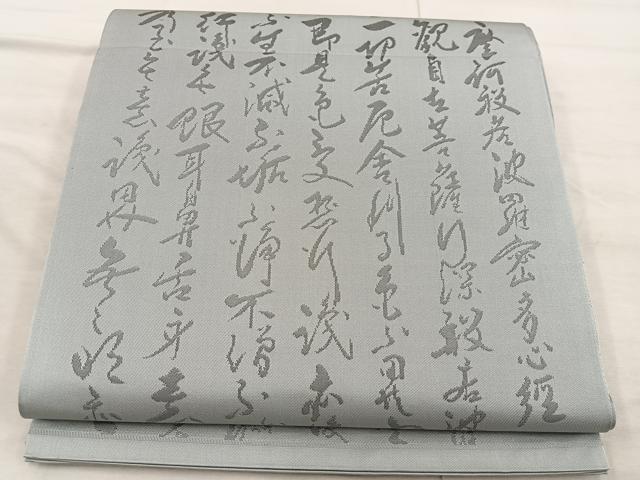 摩訶般若波羅蜜多心経
観自在菩薩行深般若波
一切苦厄舎利子色不異空
即是色受想行識亦復
不生不滅不垢不浄不増不
行識無眼耳鼻舌身意
乃至無意識界無無明亦